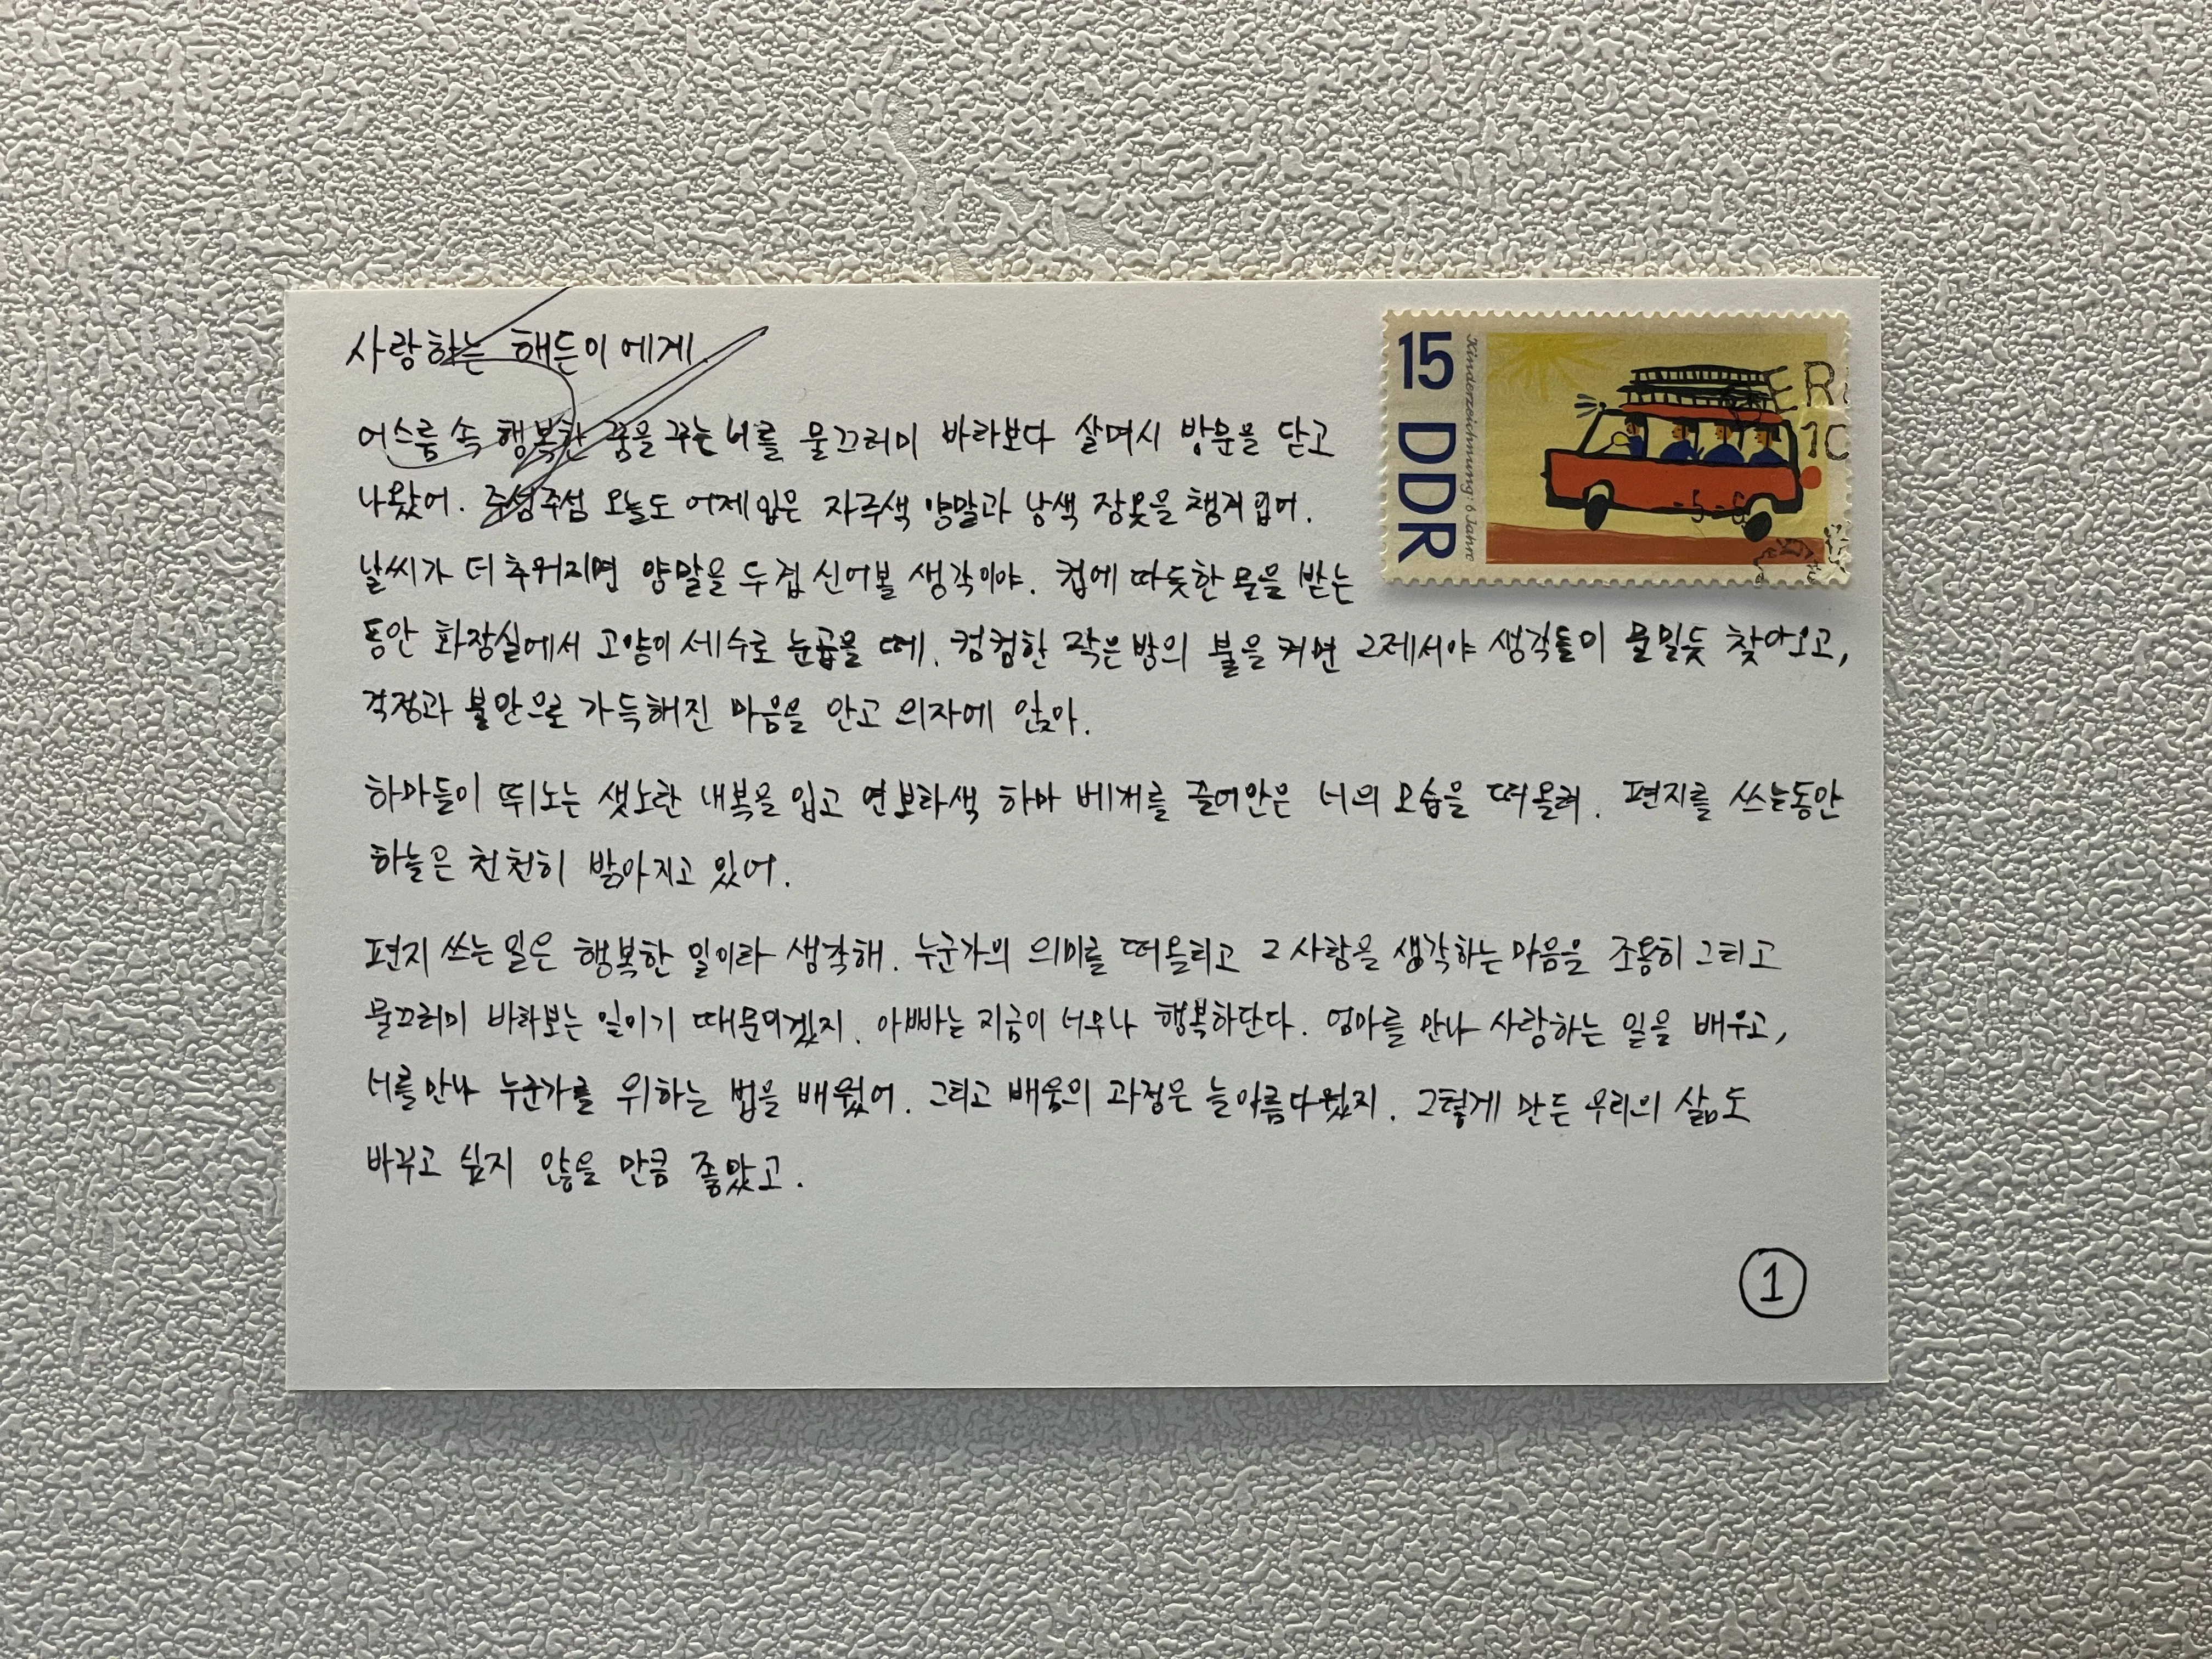 사랑하는 해든이에게.
15 DDR
Kinderzeichnung: 6 Jahre
어스름 속 행복한 꿈을 꾸는 너를 물끄러미 바라보다 살며시 방문을 닫고
나왔어. 주섬주섬 오늘도 어제 입은 자주색 양말과 남색 잠옷을 챙겨 입어.
날씨가 더 추워지면 양말을 두 겹 신어볼 생각이야. 컵에 따듯한 물을 받는
동안 화장실에서 고양이 세수로 눈곱을 떼. 컴컴한 작은 방의 불을 켜면 그제서야 생각들이 물밀듯 찾아오고,
걱정과 불안으로 가득해진 마음을 안고 의자에 앉아.
하마들이 뛰노는 샛노란 내복을 입고 연보라색 하마 베개를 끌어안은 너의 모습을 떠올려. 편지를 쓰는동안
하늘은 천천히 밝아지고 있어.
편지 쓰는 일은 행복한 일이라 생각해. 누군가의 의미를 떠올리고 그 사람을 생각하는 마음을 조용히 그리고
물끄러미 바라보는 일이기 때문이겠지. 아빠는 지금이 너무나 행복하단다. 엄마를 만나 사랑하는 일을 배우고,
너를 만나 누군가를 위하는 법을 배웠어. 그리고 배움의 과정은 늘 아름다웠지. 그렇게 만든 우리의 삶도
바꾸고 싶지 않을 만큼 좋았고.
1